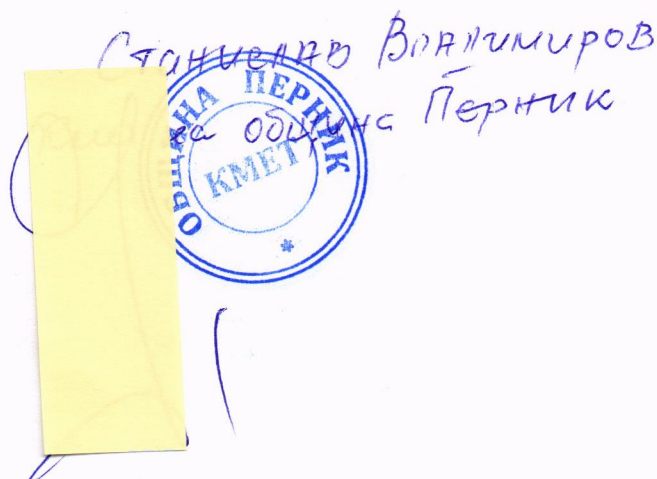 Станислав Владимиров
на община Перник
ОБЩИНА ПЕРНИК
КМЕТ